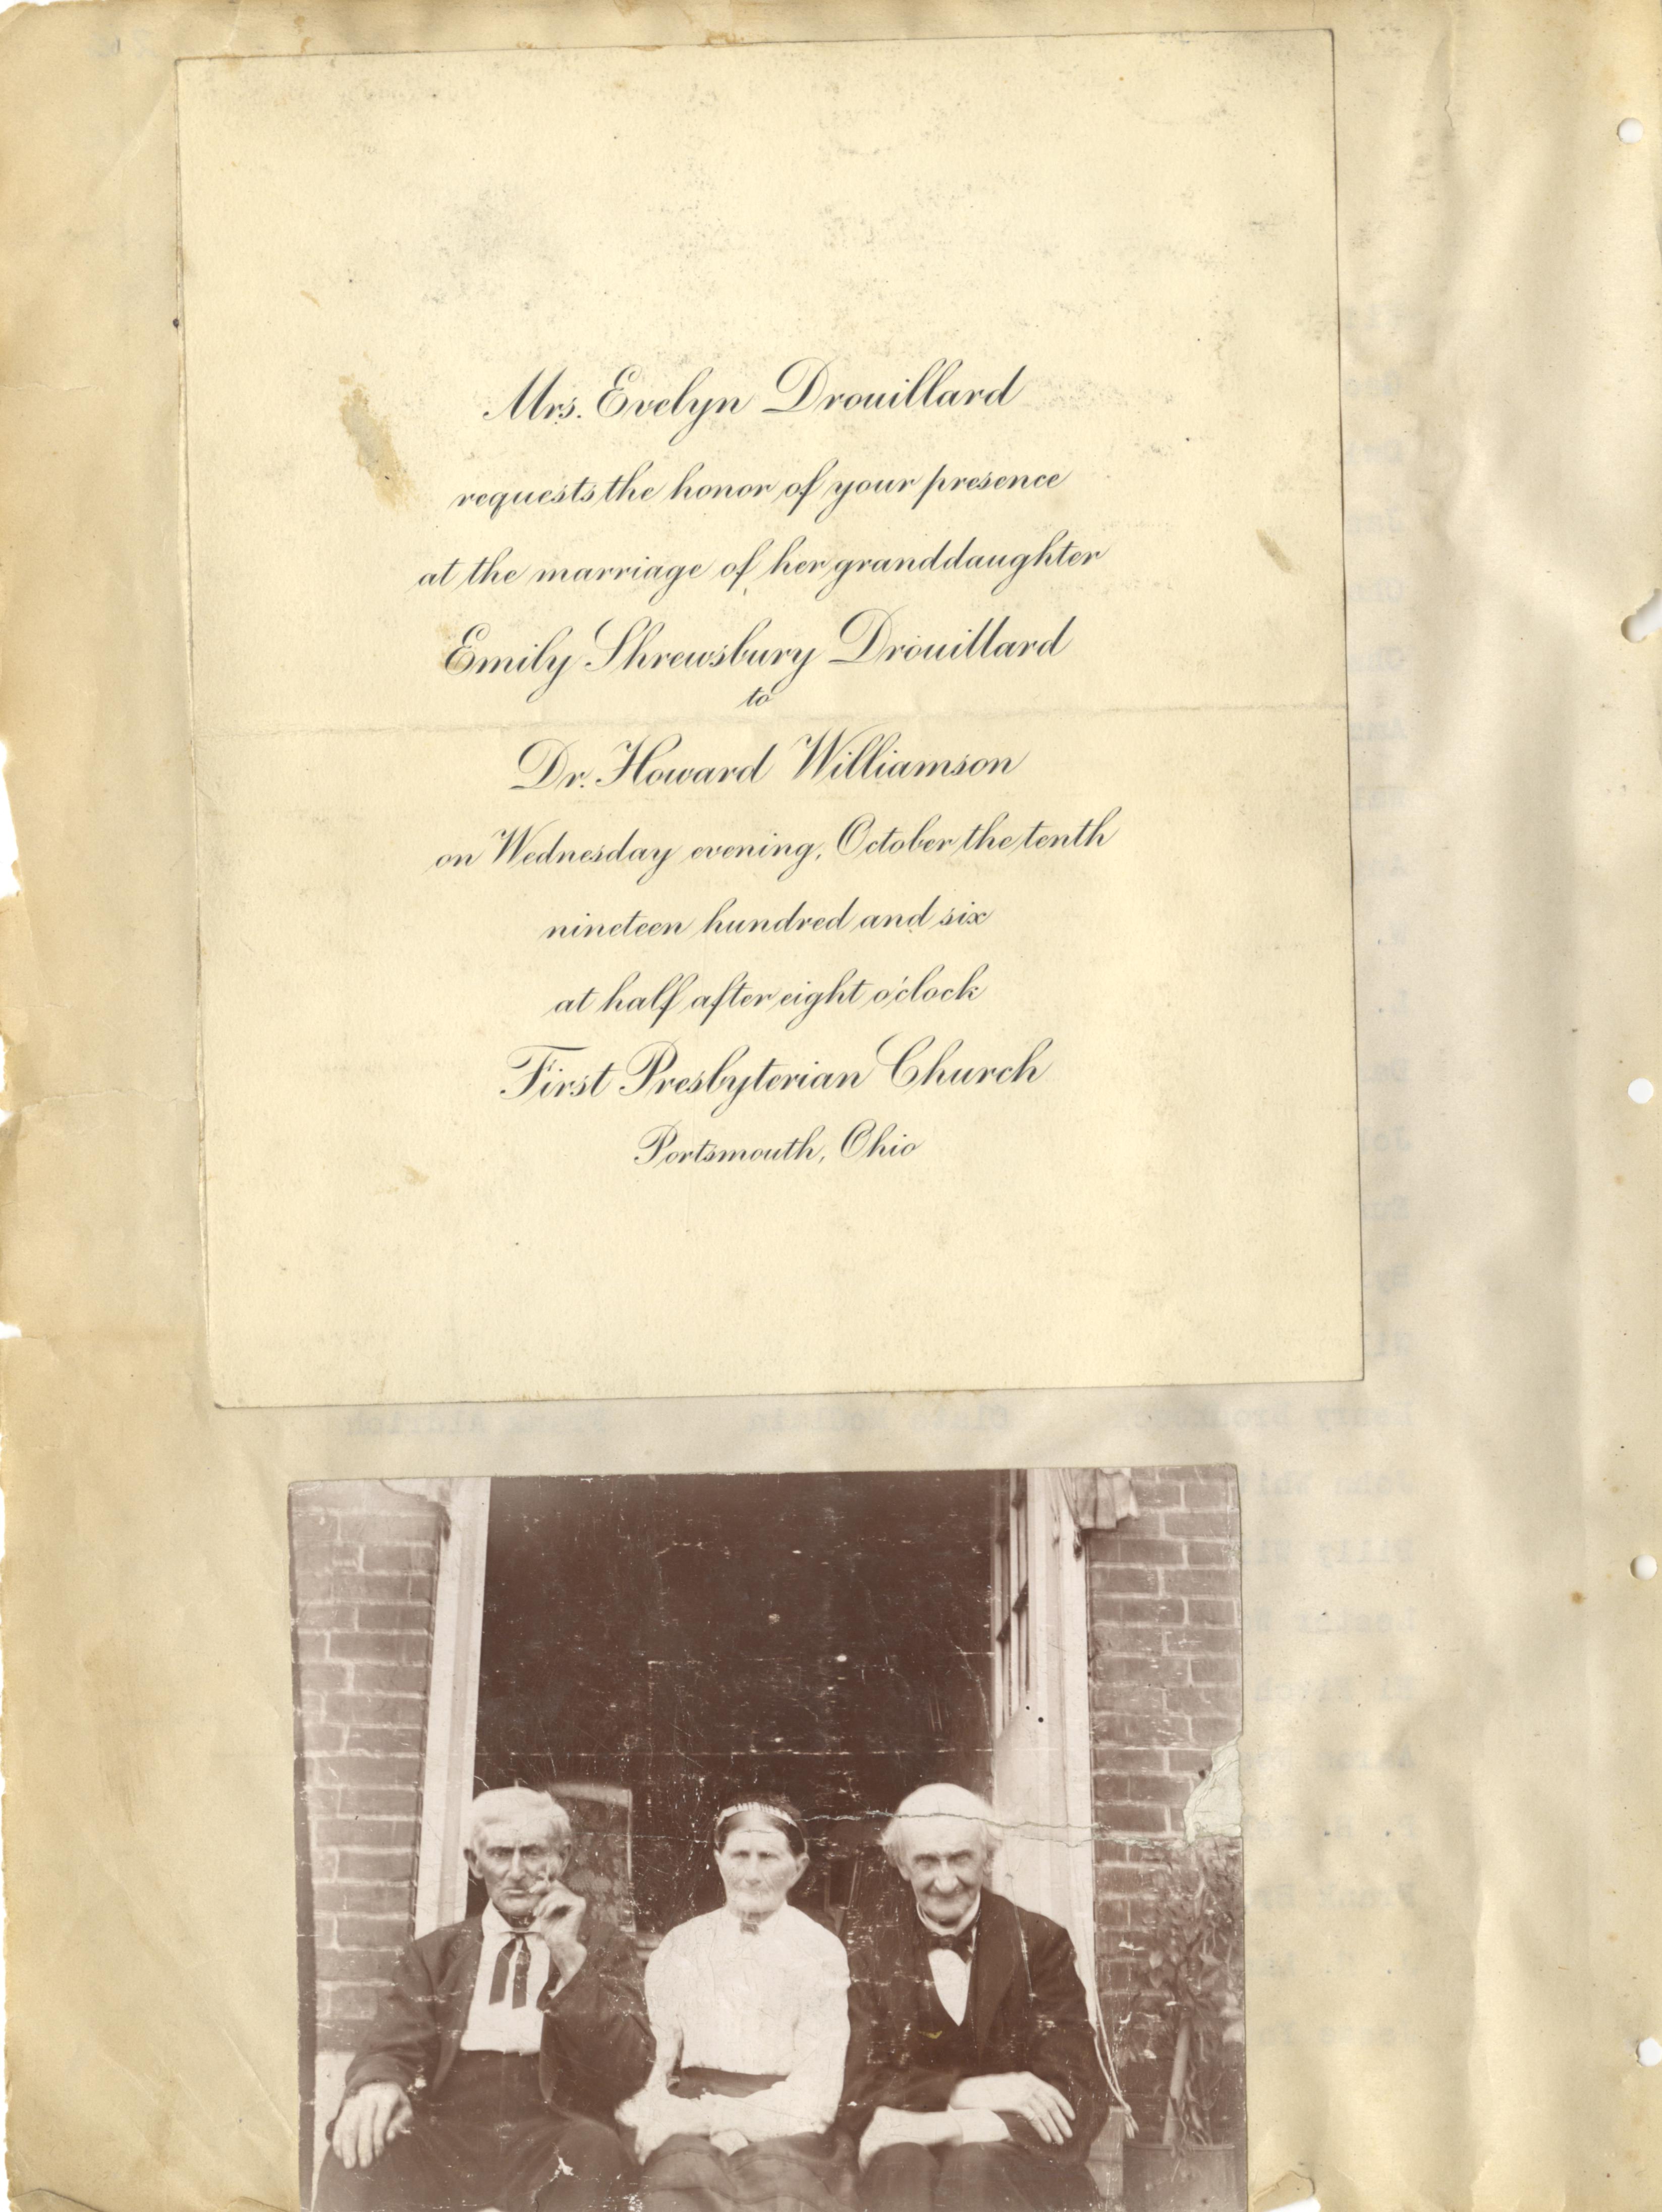 Mrs. Evelyn Drouillard
requests the honor of your presence
at the marriage of her granddaughter
Emily Shrewsbury Drouillard
to
Dr. Howard Williamson
on Wednesday evening, October the tenth
nineteen hundred and six
at half after eight o'clock
First Presbyterian Church
Portsmouth, Ohio